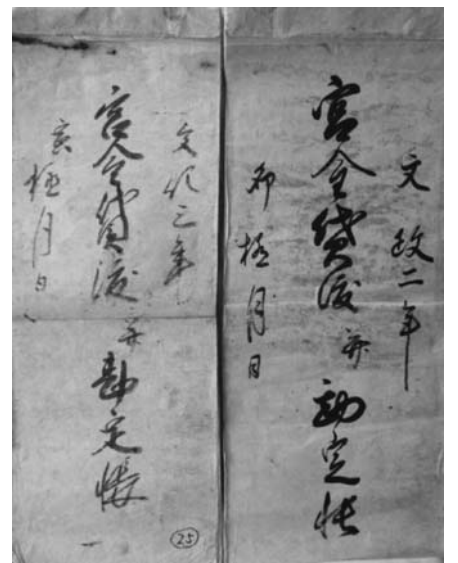 文政二年
宮金貸渡并勘定帳
卯極月日
文化三年
宮金貸渡并勘定帳
寅極月日
25